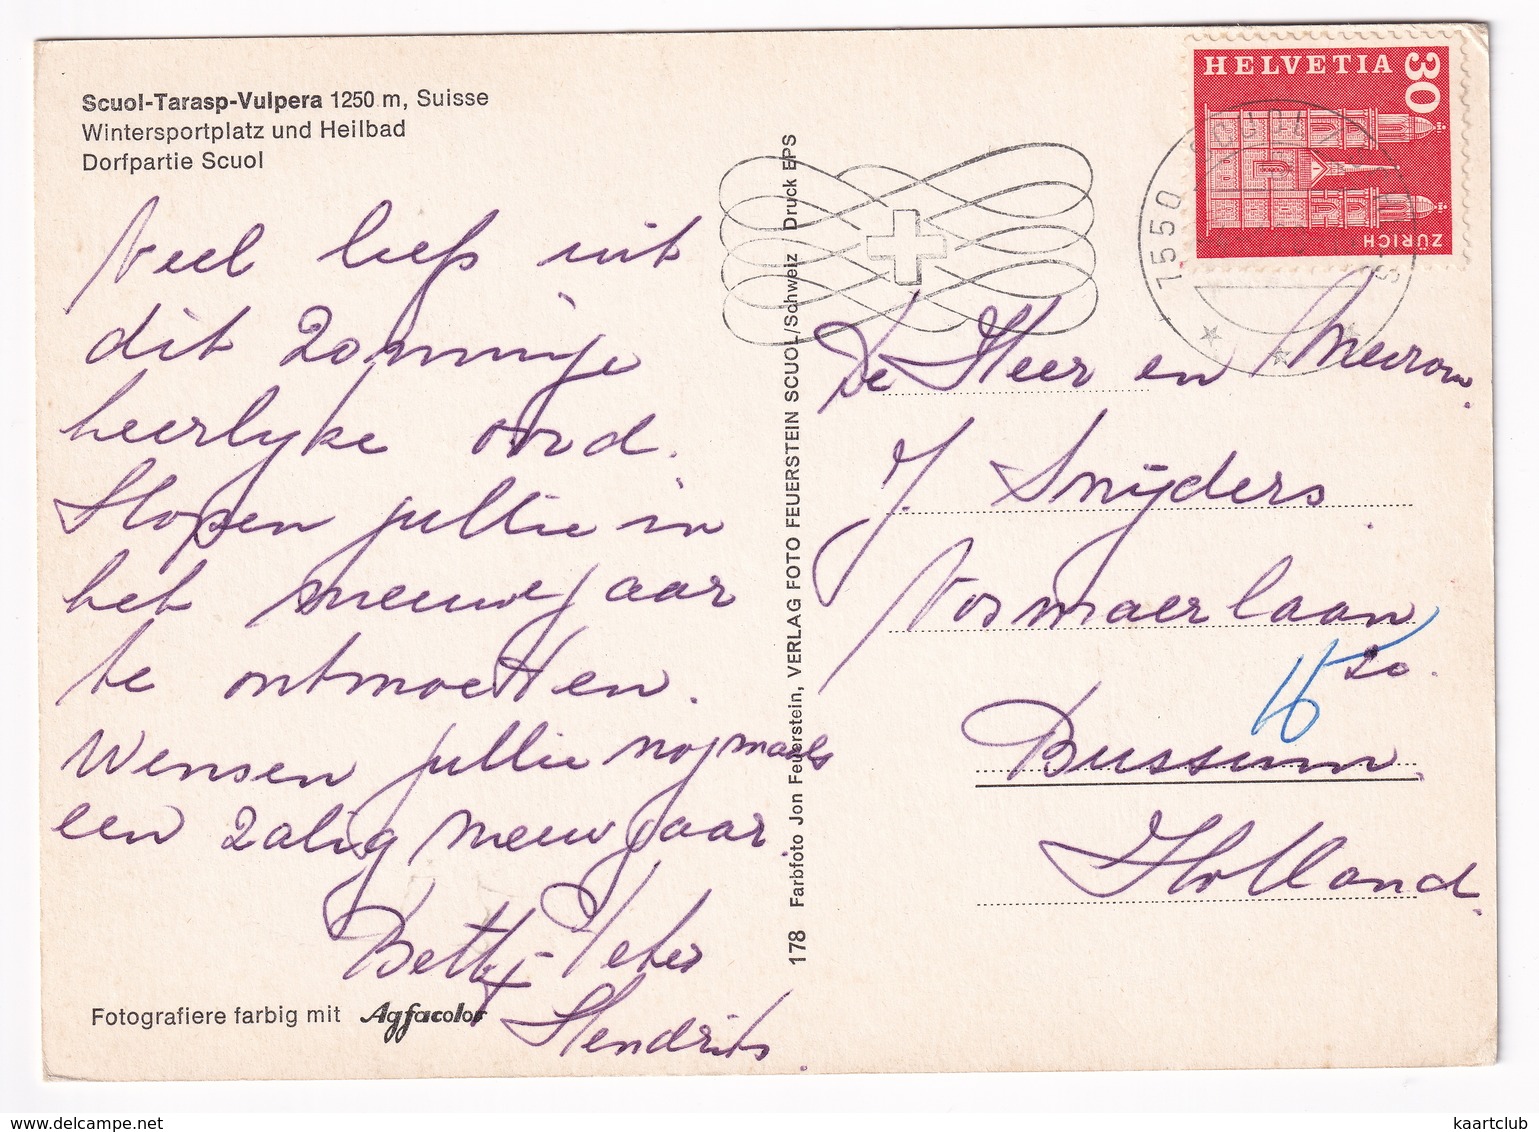 Scuol-Tarasp-Vulpera 1250 m, Suisse
Wintersportplatz und Heilbad
Dorfpartie Scuol
Veel liefs uit
dit zonnige
heerlyke oord.
Hopen jullie in
het nieuwejaar
te ontmoetten.
Wensen jullie nogmaals
een zalig nieuwjaar.
Betty-Peter
Hendriks.
Fotografiere farbig mit Agfacolor
178 Farbfoto Jon Feuerstein, VERLAG FOTO FEUERSTEIN SCUOL/Schweiz Druck EPS
HELVETIA
30
ZÜRICH
7550
De Heer en Mevrouw.
J. Snijders.
Vosmaerlaan
20.
Bussum.
Holland.
www.delcampe.net
kaartclub